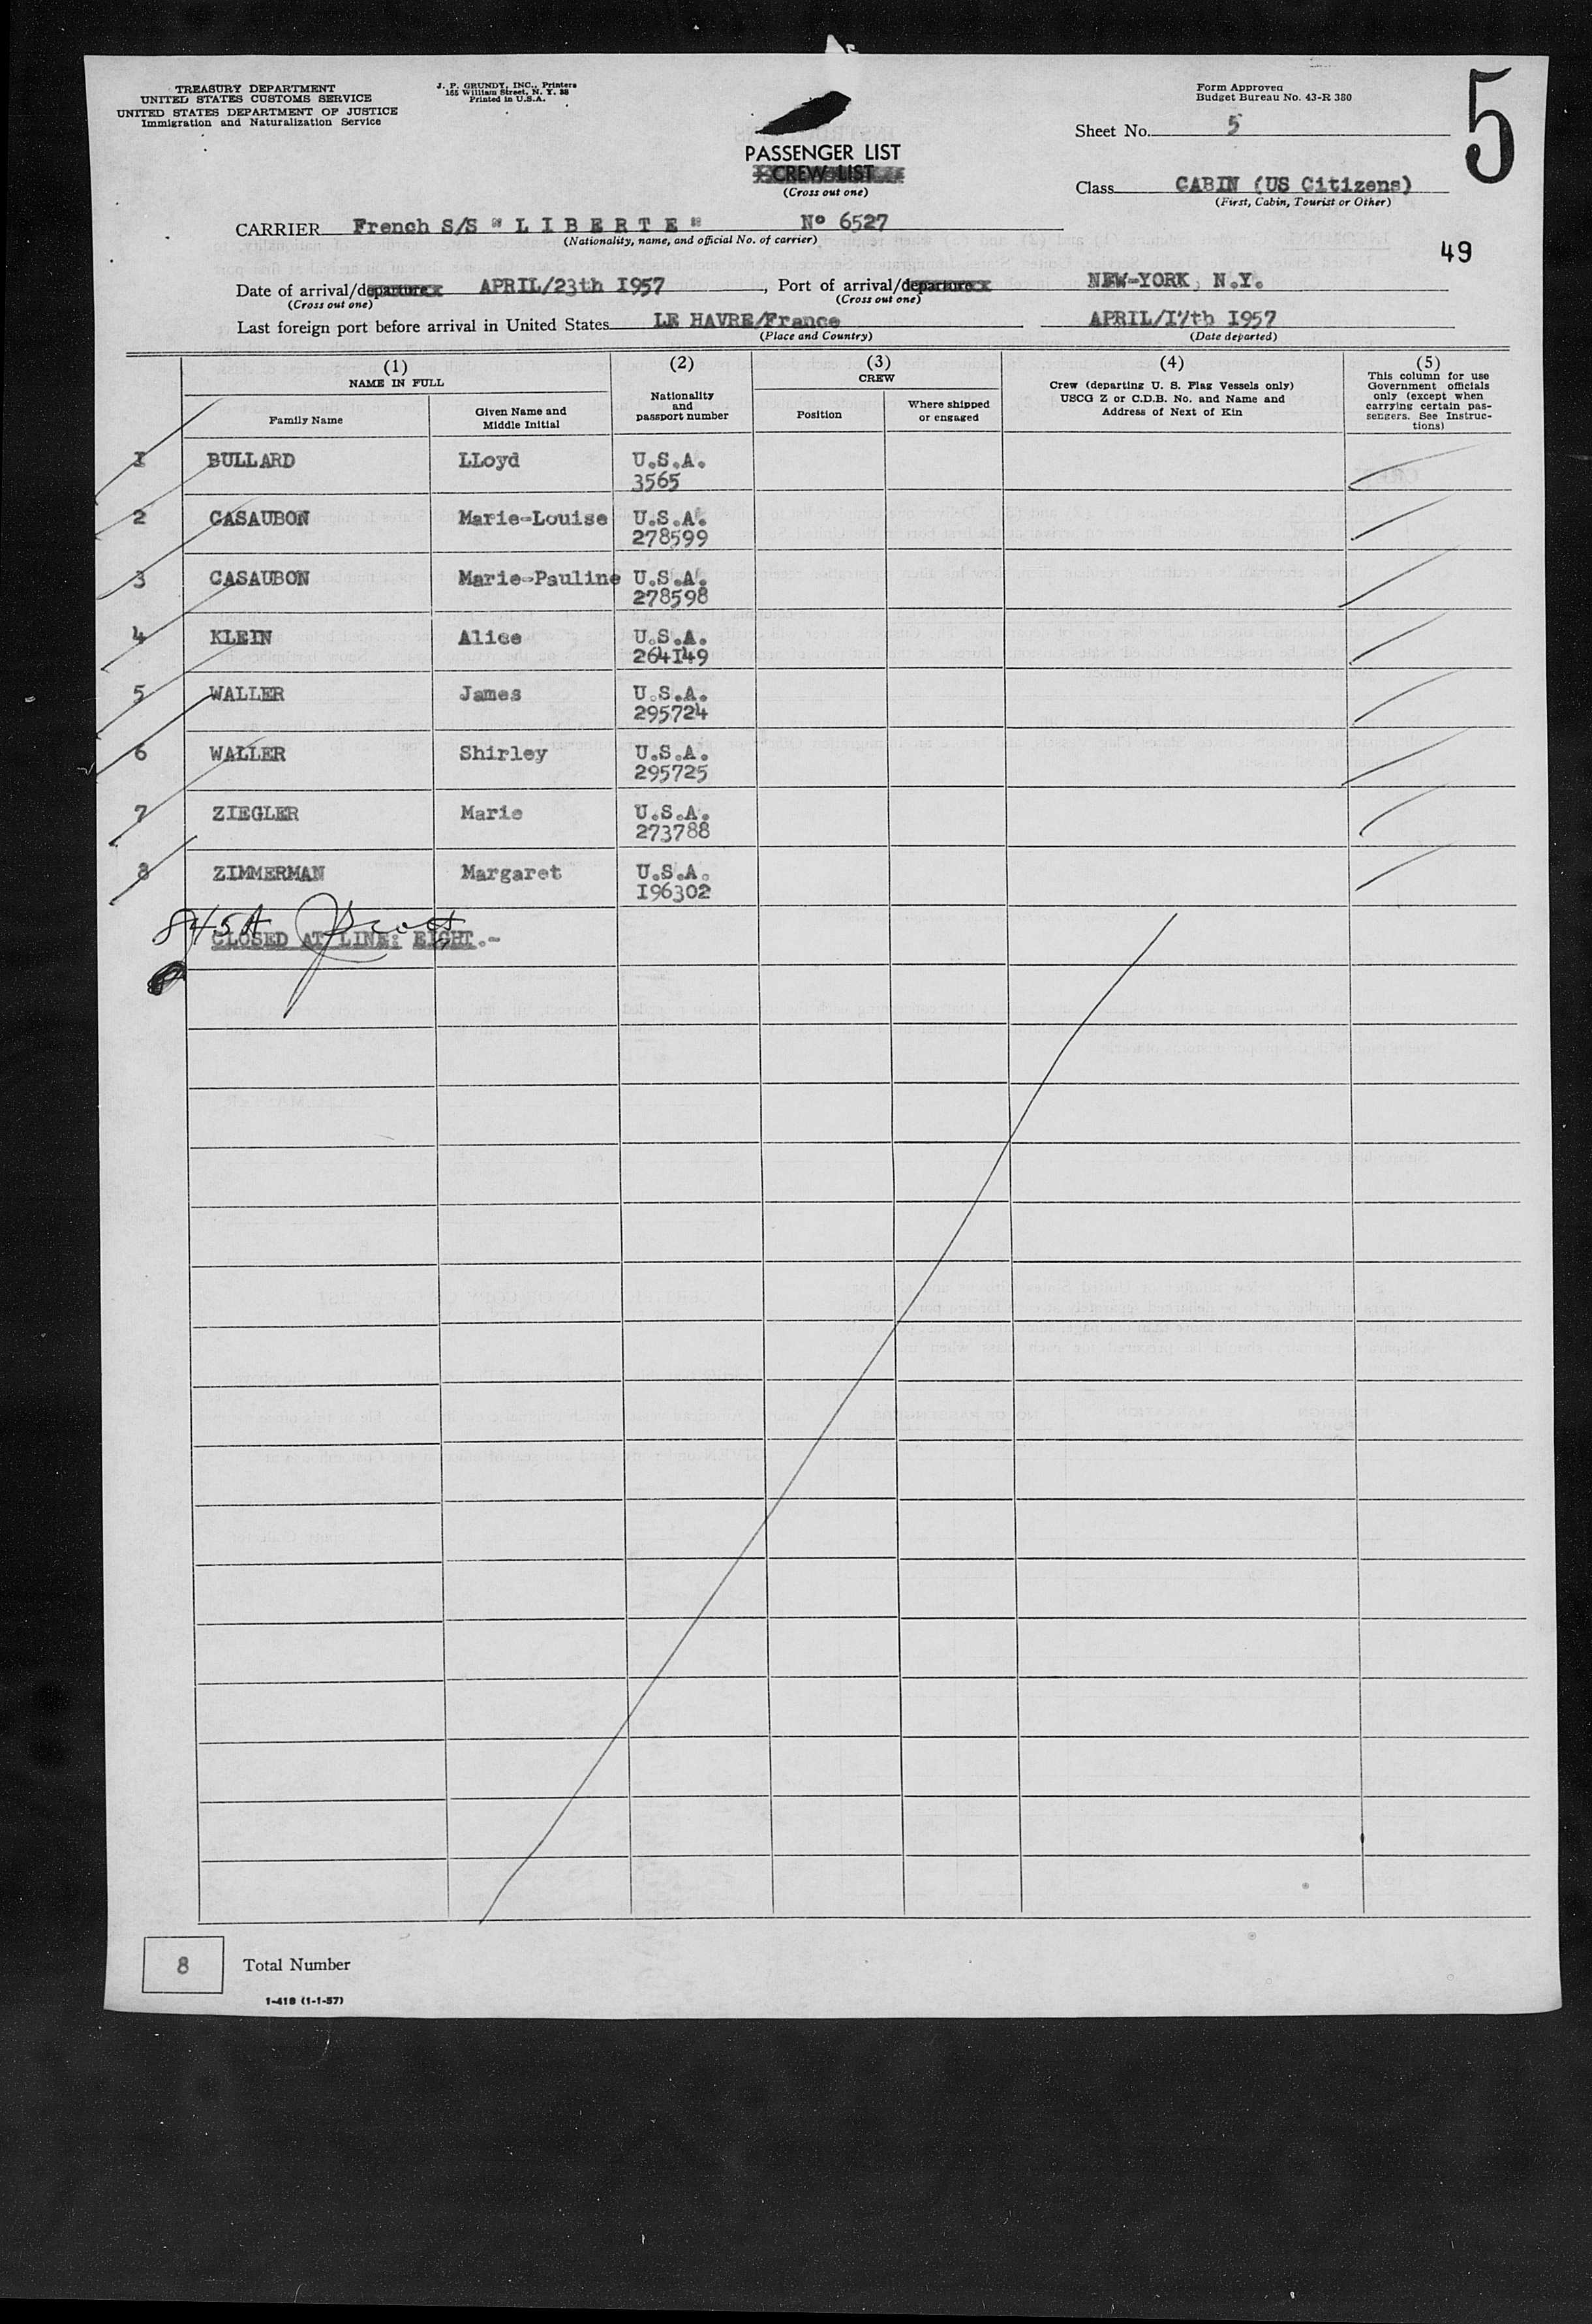 TREASURY DEPARTMENT
UNITED STATES CUSTOMS SERVICE
UNITED STATES DEPARTMENT OF JUSTICE
Immigration and Naturalization Service
J. P. GRUNDY, INC., Printers
165 William Street, N. Y. 38
Printed in U.S.A.
Form Approved
Budget Bureau No. 43-R 380
5
Sheet No. 5
PASSENGER LIST
CREW LIST
(Cross out one)
Class CABIN (US Citizens)
(First, Cabin, Tourist or Other)
CARRIER French S/S " L I B E R T E " Nº 6527
(Nationality, name, and official No. of carrier)
49
Date of arrival/departure APRIL/23th I957, Port of arrival/departure NEW-YORK, N.Y.
(Cross out one) (Cross out one)
Last foreign port before arrival in United States LE HAVRE/France APRIL/I7th I957
(Place and Country) (Date departed)
(1) (2) (3) (4) (5)
NAME IN FULL
Family Name
Given Name and
Middle Initial
Nationality
and
passport number
CREW
Position
Where shipped
or engaged
Crew (departing U. S. Flag Vessels only)
USCG Z or C.D.B. No. and Name and
Address of Next of Kin
This column for use
Government officials
only (except when
carrying certain pas-
sengers. See Instruc-
tions)
I BULLARD LLoyd U.S.A.
3565
2 CASAUBON Marie-Louise U.S.A.
278599
3 CASAUBON Marie-Pauline U.S.A.
278598
4 KLEIN Alice U.S.A.
264I49
5 WALLER James U.S.A.
295724
6 WALLER Shirley U.S.A.
295725
7 ZIEGLER Marie U.S.A.
273788
8 ZIMMERMAN Margaret U.S.A.
I96302
CLOSED AT LINE: EIGHT.-
8 Total Number
I-418 (1-1-57)